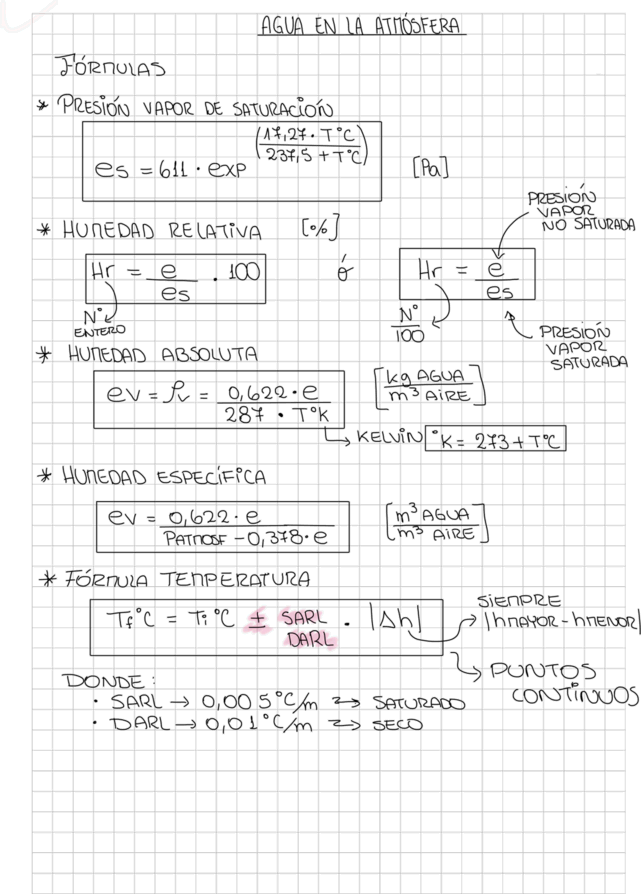 AGUA EN LA ATMÓSFERA
FÓRMULAS
* PRESIÓN VAPOR DE SATURACIÓN
es = 611 · exp (17,27 · T°C / 237,5 + T°C) [Pa]
* HUMEDAD RELATIVA [%]
PRESIÓN
VAPOR
NO SATURADA
Hr = e / es · 100 ó Hr = e / es
N°
ENTERO
N° / 100
PRESIÓN
VAPOR
SATURADA
* HUMEDAD ABSOLUTA
ev = ρv = 0,622 · e / 287 · T°K [kg AGUA / m³ AIRE]
KELVIN °K = 273 + T°C
* HUMEDAD ESPECÍFICA
ev = 0,622 · e / PATMOSF - 0,378 · e [m³ AGUA / m³ AIRE]
* FÓRMULA TEMPERATURA
Tf °C = Ti °C ± SARL · |Δh|
DARL
SIEMPRE
|hMAYOR - hMENOR|
PUNTOS
CONTINUOS
DONDE:
· SARL → 0,005°C/m → SATURADO
· DARL → 0,01°C/m → SECO